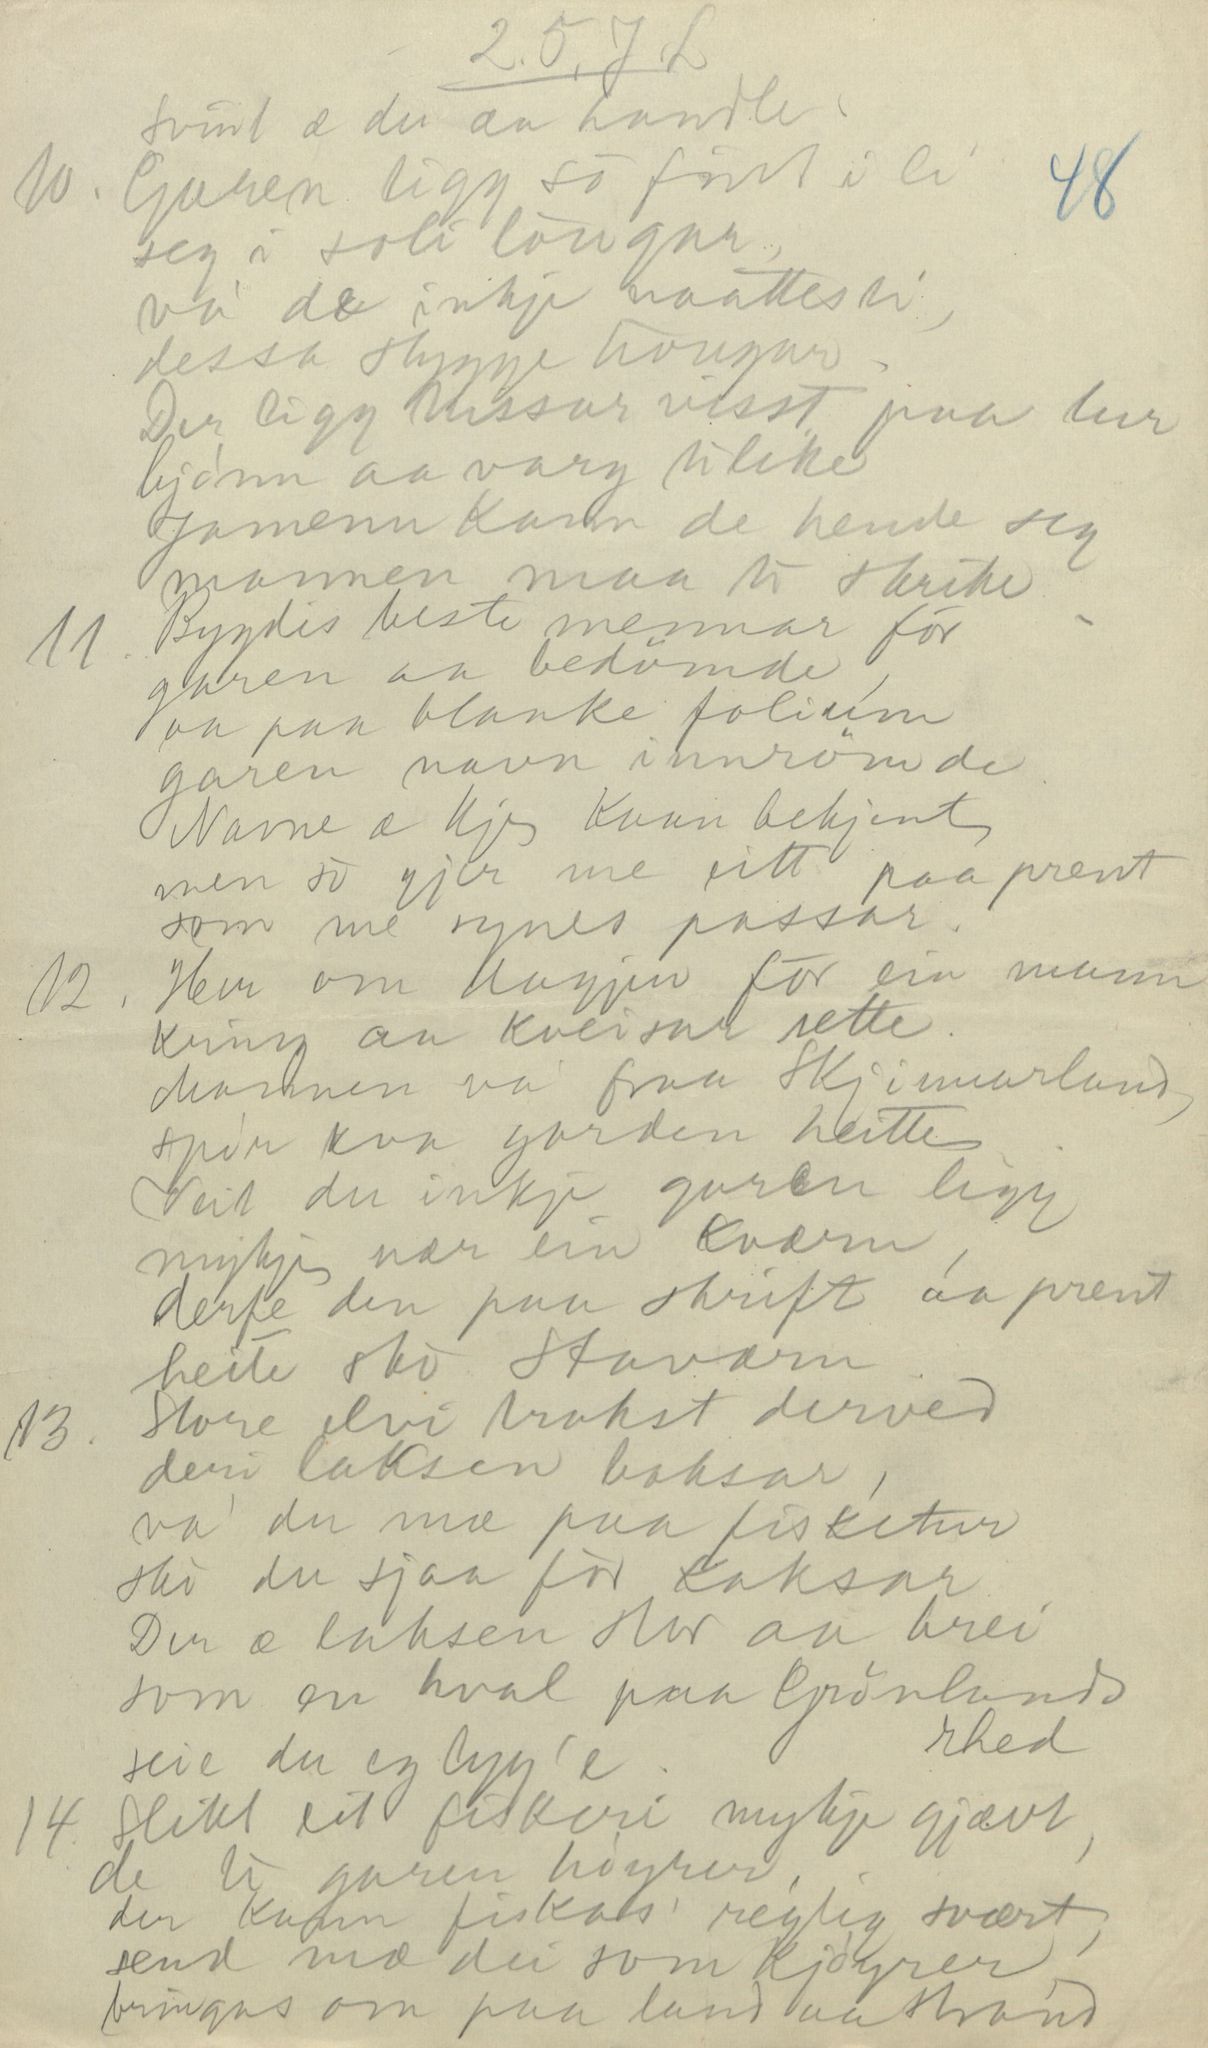 2. 5. J. L
svint æ du aa handle.
48
10. Garen ligg so fint i li
seg i soli lougar,
va' de inkje naattesti,
dessa stygge hougar.
Der ligg tussar visst paa lur
bjönn aa varg tilike
Jamenn kann de hende seg
mannen maa ti skrike
11. Bygdis beste mennar för
garen aa bedömde,
aa paa blanke folium
garen navn innrömde
Navne æ kje kaan bekjent
men so gjer me eitt paa prent
som me synes passar.
12. Her om dagjen för ein mann
kring aa kveisar sette.
Mannen va' fraa Skjimarland,
spör kva garden heitte
Veit du inkje garen ligg
mykje nær ein kværn,
derfe den paa skrift aa prent
heite sko Staværn
13. Store elvi brakst derved
deri laksen baksar,
va' du mæ paa fisketur
sko du sjaa för laksar
Der æ laksen stor aa brei
som en hval paa Grönlands
rhed
seie du eg lyg'e.
14. Slikt eit fiskeri mykje gjævt,
de ti garen höyrer,
der kann fiskas' reglig svært,
send mæ dei som kjöyrer
bringas om paa land aa strand